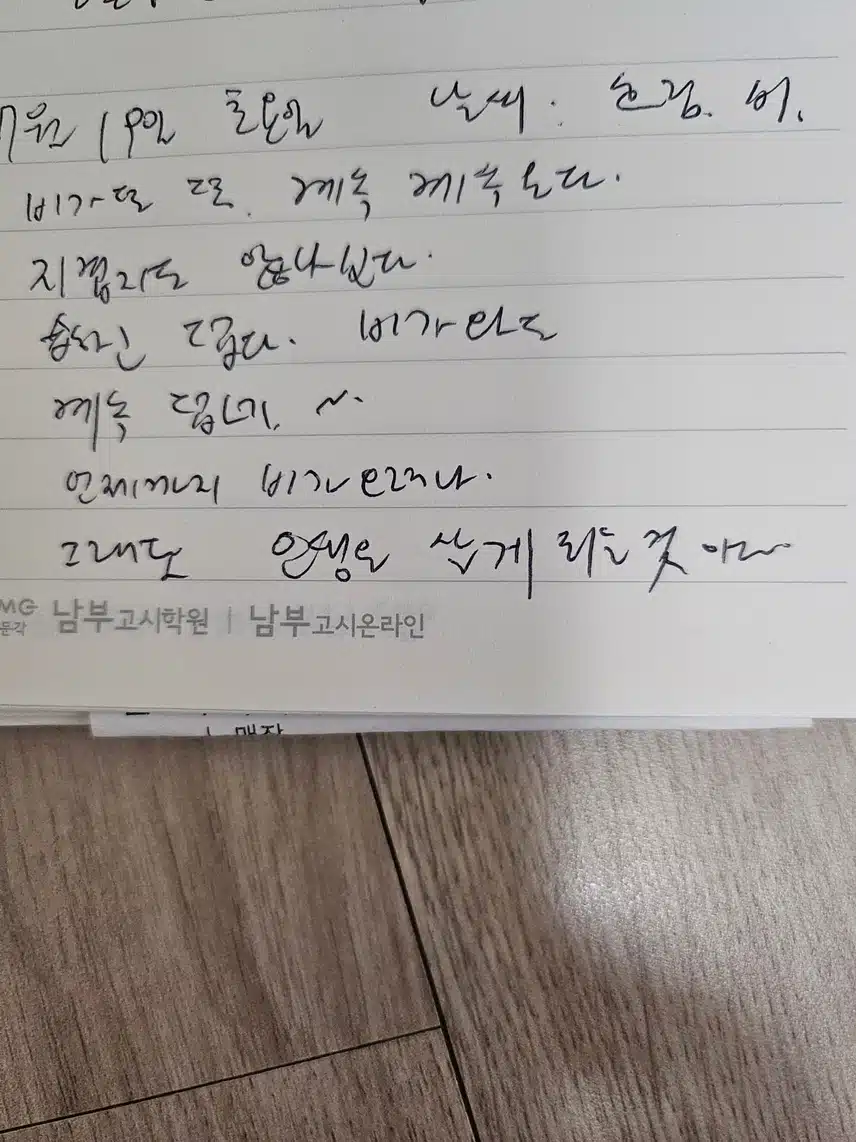 7월 19일 토요일 날씨: 흐림. 비.
비가 또 또. 계속 계속 온다.
지겹지도 않나 싶다.
습하긴 덥다. 비가 와도
계속 덥네. ~.
언제까지 비가 오려나.
그래도 인생은 살게 되는 것 아
남부고시학원 | 남부고시온라인
매장